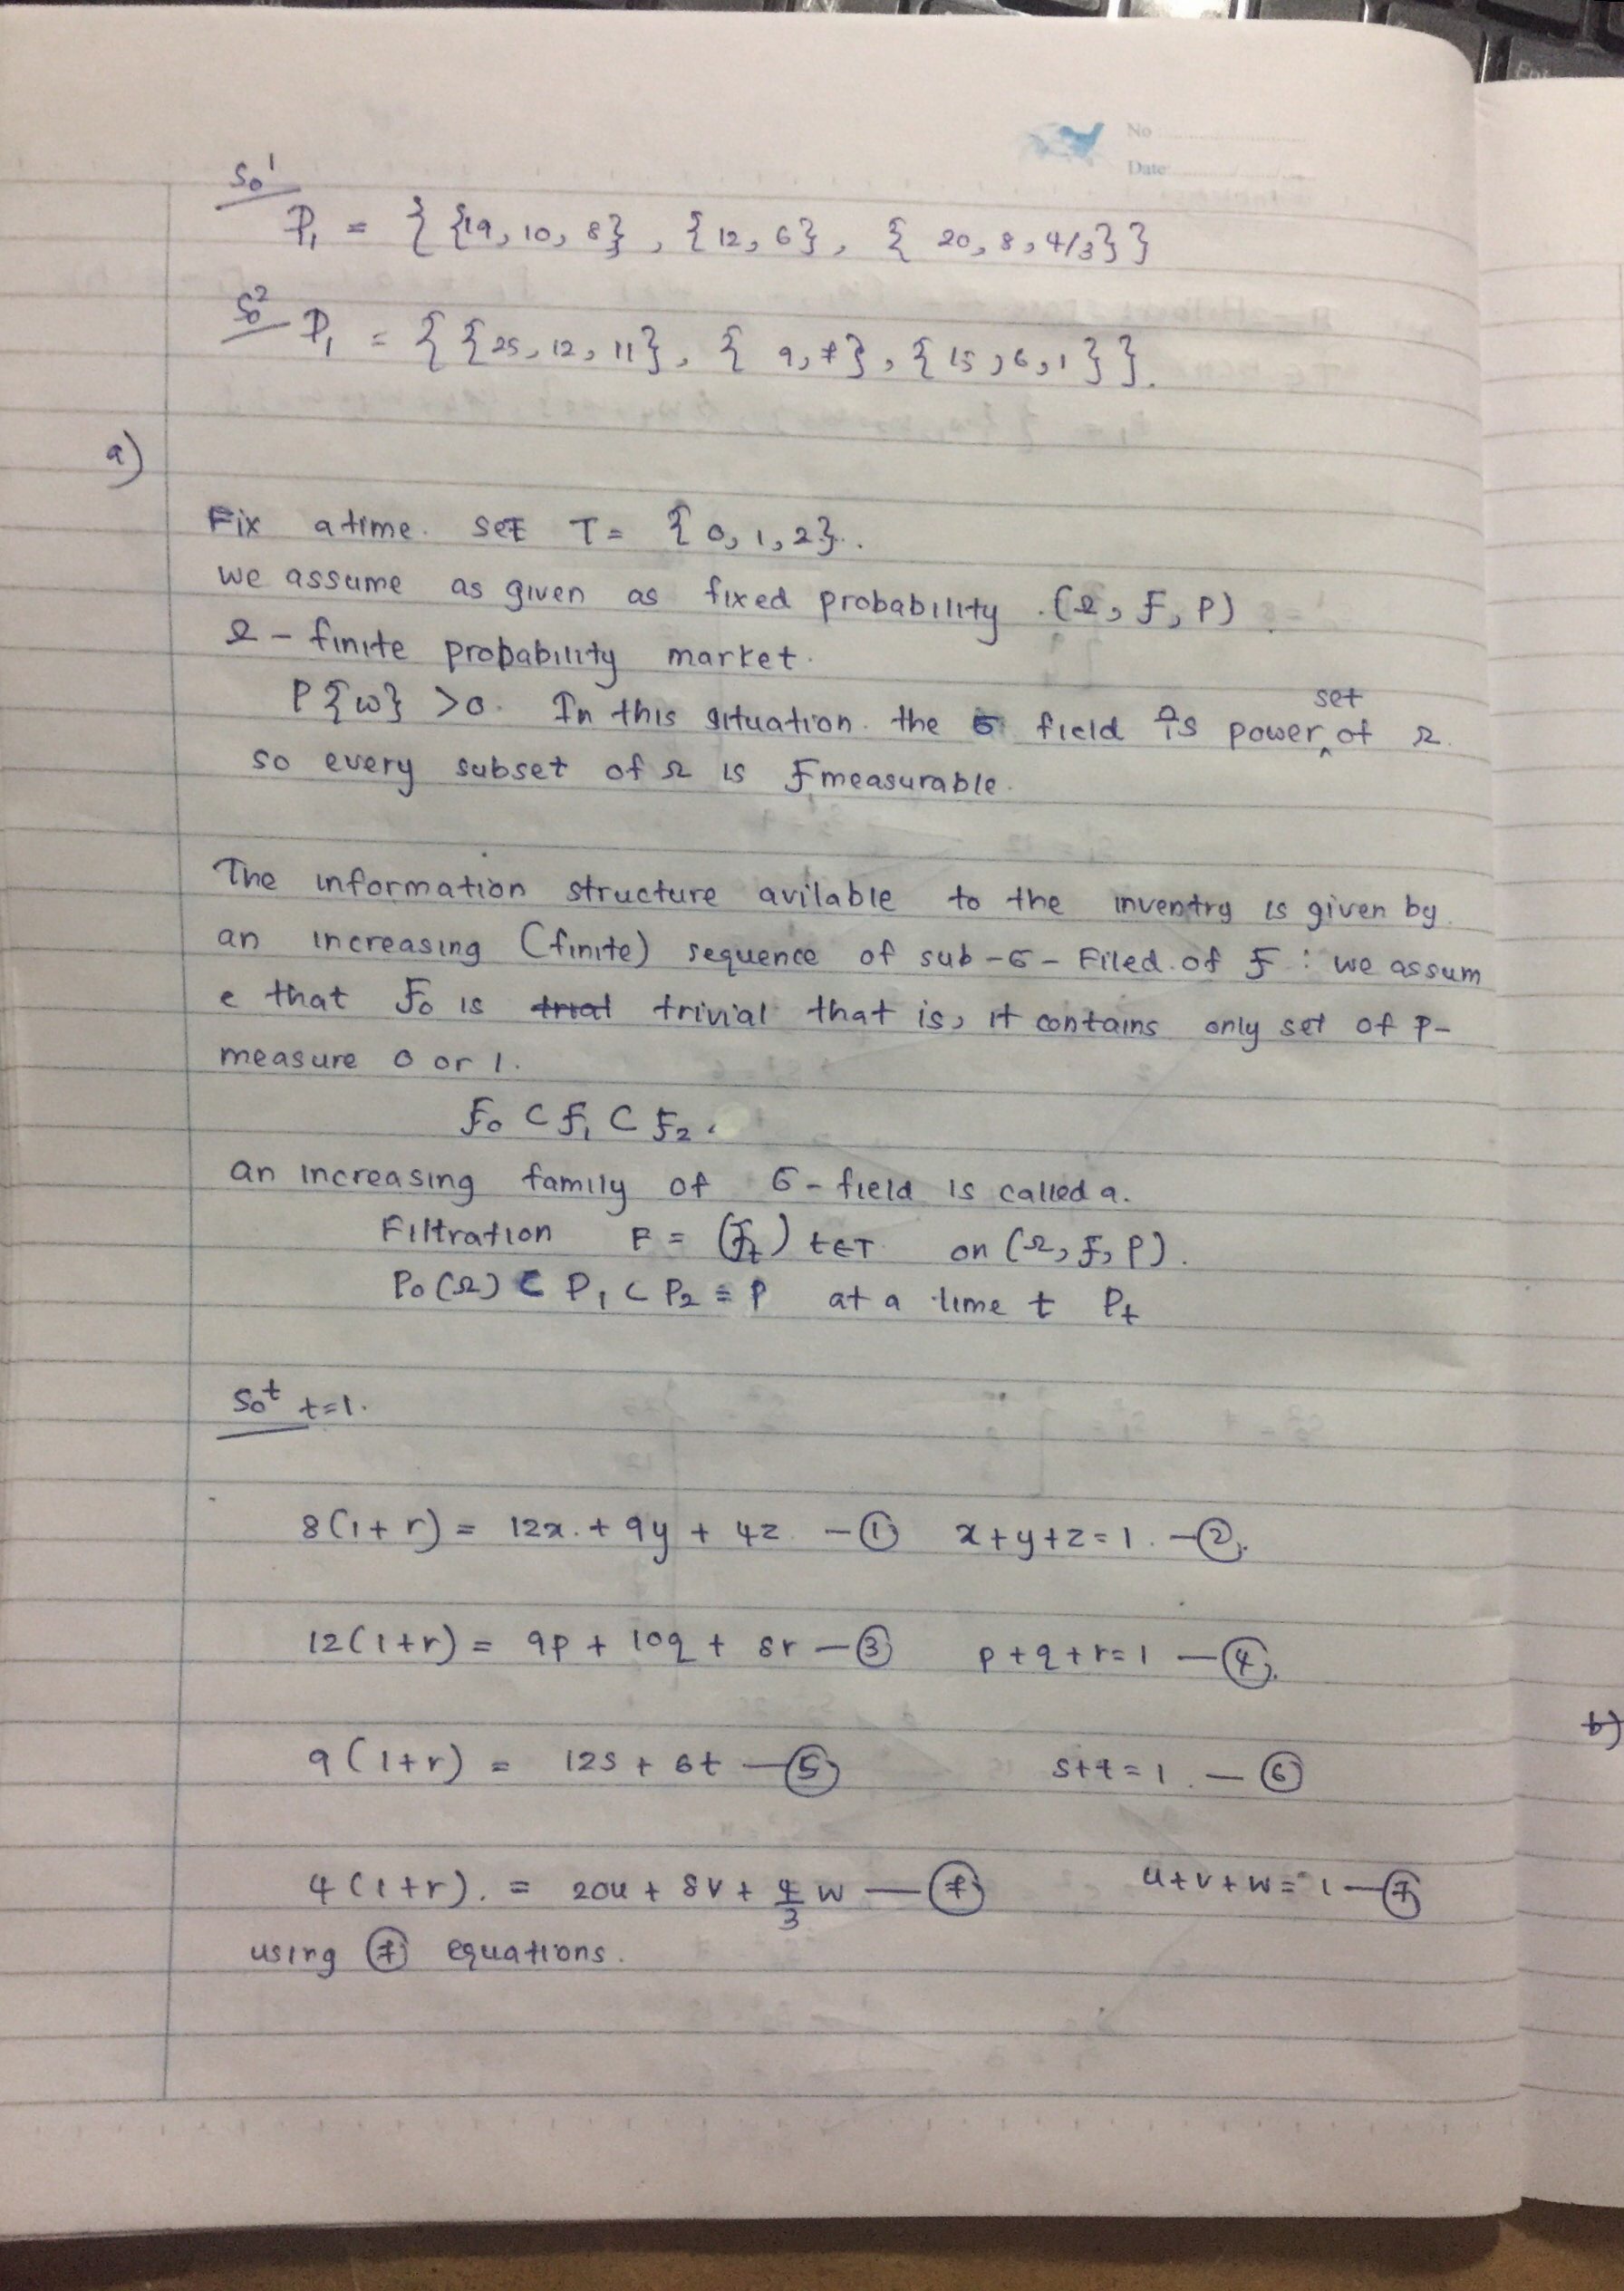 No
Date
S₀¹
P₁ = { {19, 10, 8}, {12, 6}, { 20, 8, 4/3} }
S₀² P₁ = { {25, 12, 11}, { 9, 7}, { 15, 6, 1 } }.
a)
Fix a time. set T = { 0, 1, 2}.
we assume as given as fixed probability (Ω, F, P)
Ω - finite probability market.
P{ω} > 0. In this situation. the σ field is power set of Ω.
so every subset of Ω is F measurable.
The information structure avilable to the inventry is given by
an increasing (finite) sequence of sub - σ - Filed. of F : we assum
e that F₀ is trial trivial that is, it contains only set of P-
measure 0 or 1.
F₀ ⊂ F₁ ⊂ F₂.
an increasing family of σ - field is called a.
Filtration F = (Fₜ) t∈T on (Ω, F, P).
P₀(Ω) ⊂ P₁ ⊂ P₂ = P at a time t Pₜ
S₀ᵗ t=1.
8(1+r) = 12x. + 9y + 4z. — ① x+y+z=1. — ②.
12(1+r) = 9p + 10q + 8r — ③ p+q+r=1 — ④.
9(1+r) = 12s + 6t — ⑤ s+t=1. — ⑥
4(1+r). = 20u + 8v + 4/3 w — ⑦ u+v+w=1 — ⑦
using ⑦ equations.
b)